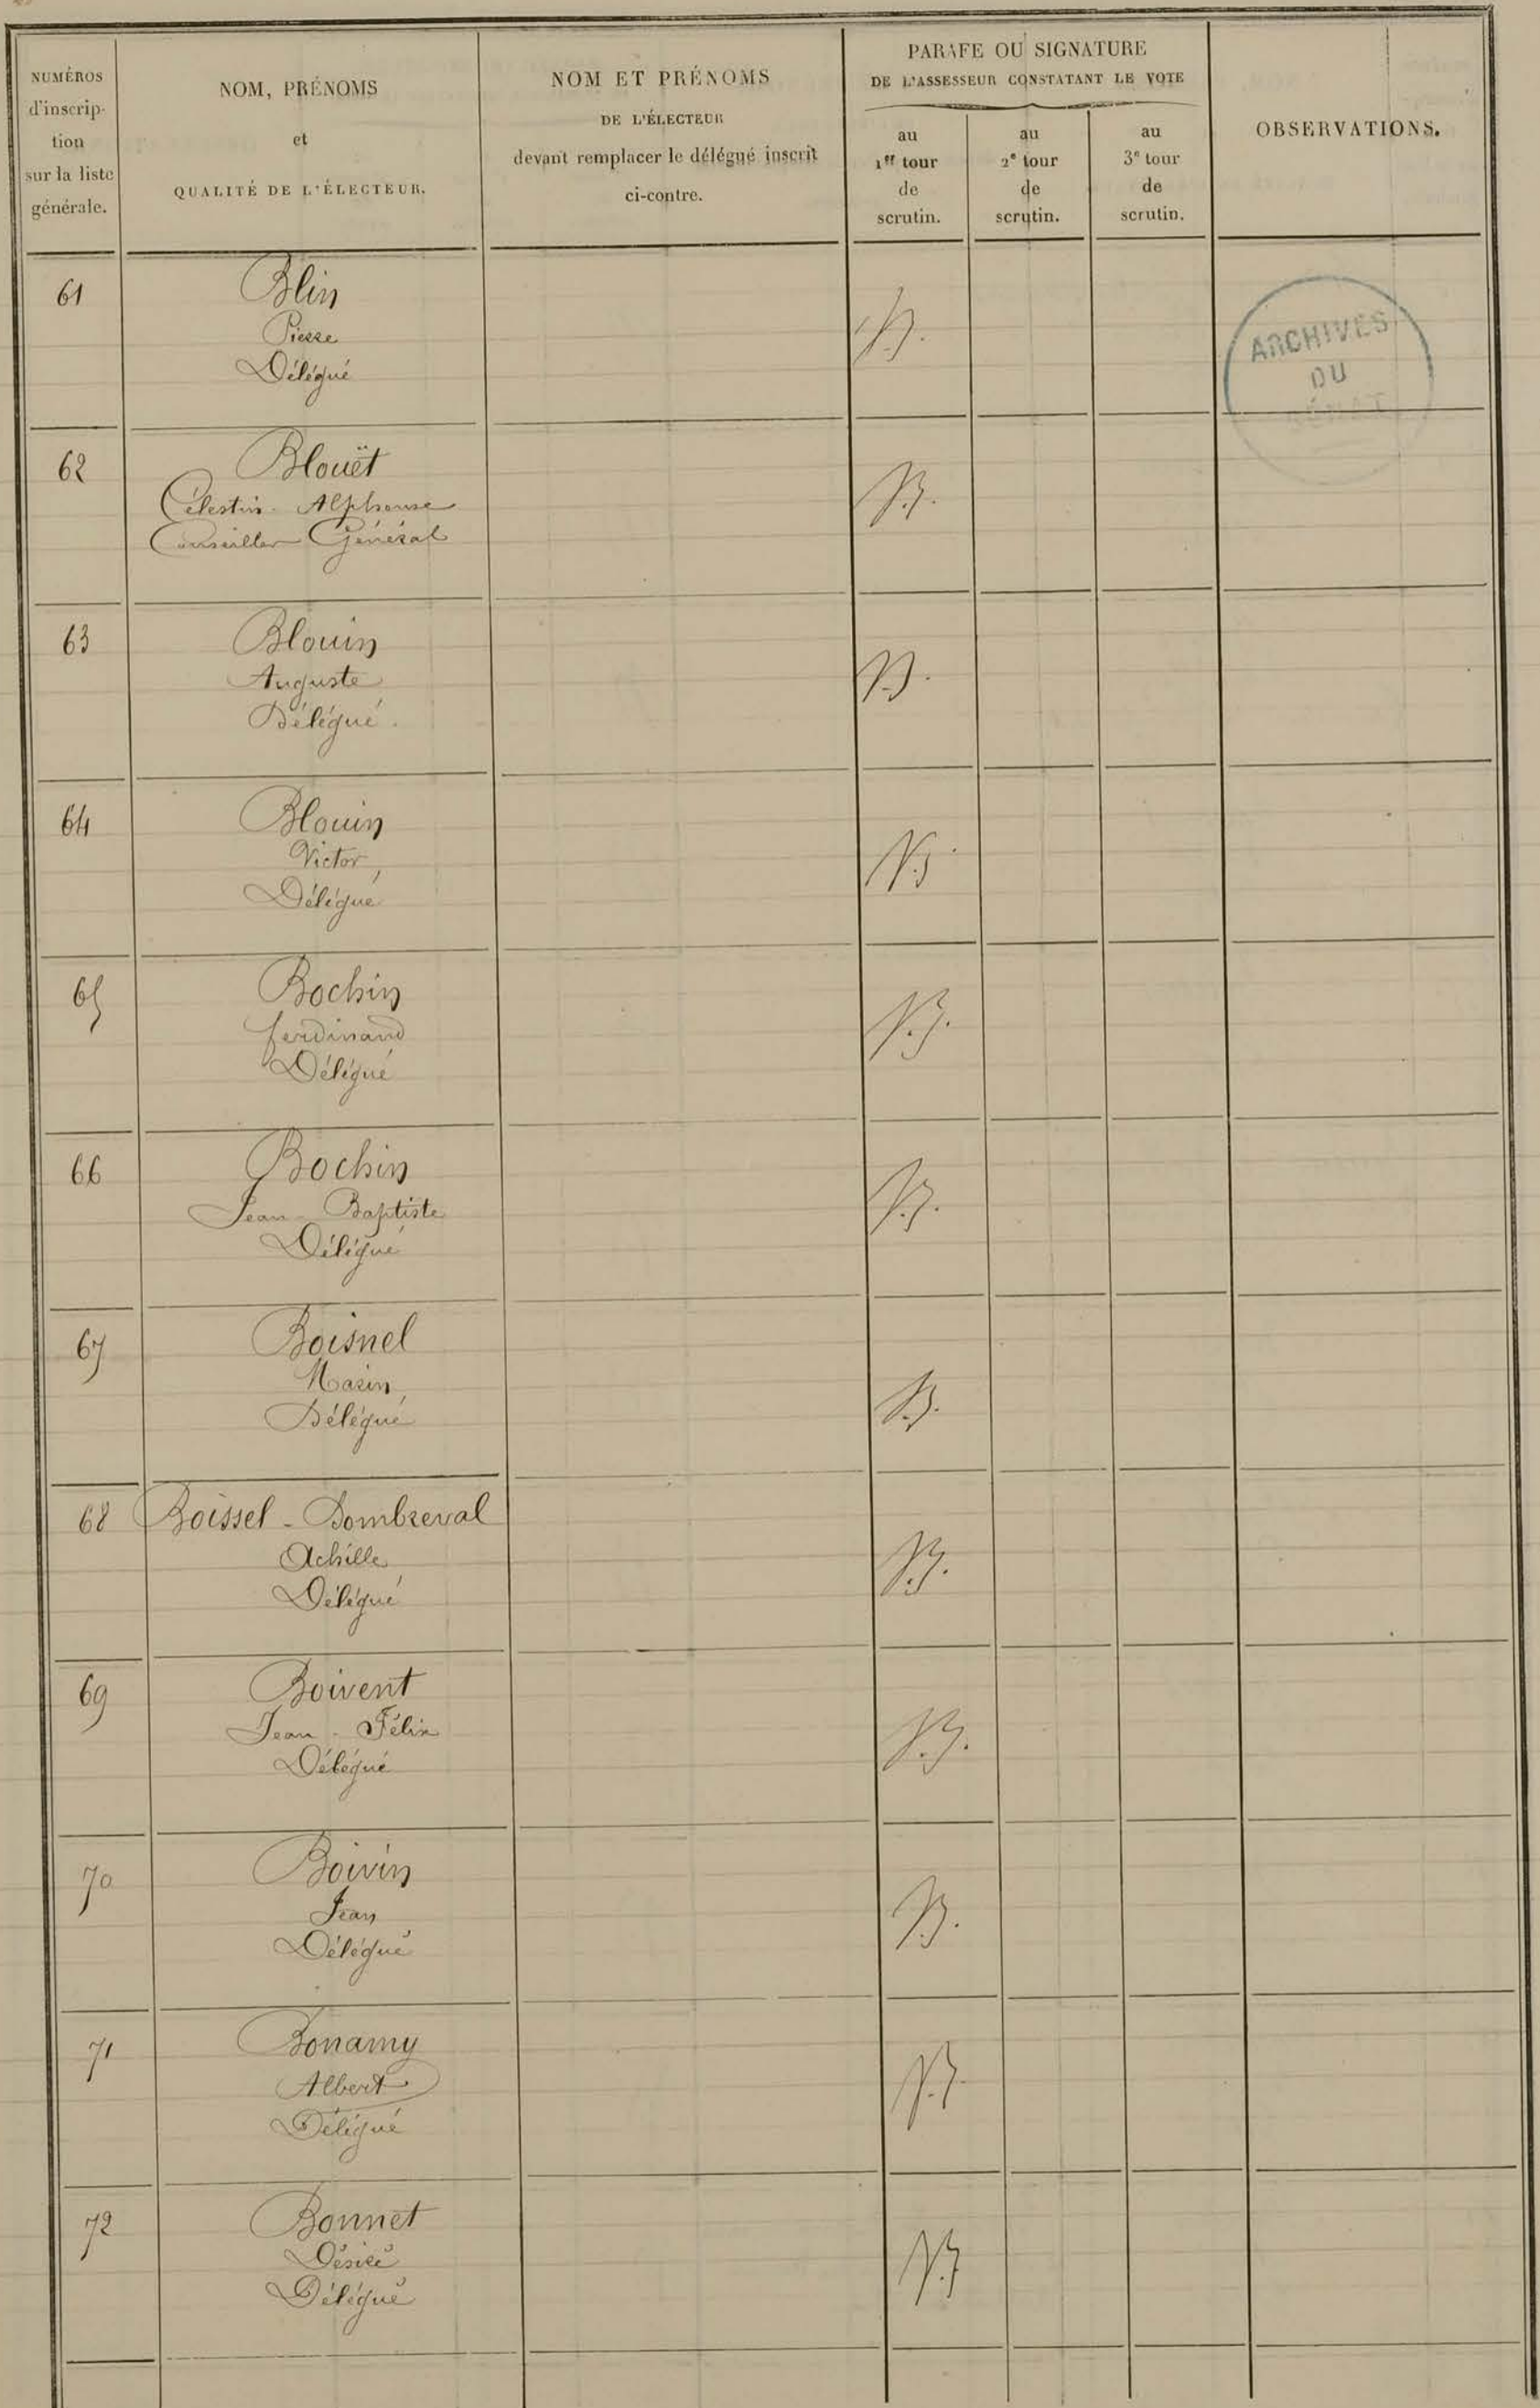 NUMÉROS
d'inscrip-
tion
sur la liste
générale.
NOM, PRÉNOMS
et
QUALITÉ DE L'ÉLECTEUR.
NOM ET PRÉNOMS
DE L'ÉLECTEUR
devant remplacer le délégué inscrit
ci-contre.
PARAFE OU SIGNATURE
DE L'ASSESSEUR CONSTATANT LE VOTE
au
1er tour
de
scrutin.
au
2e tour
de
scrutin.
au
3e tour
de
scrutin.
OBSERVATIONS.
61
Blin
Pierre
Délégué
ARCHIVES
DU
SÉNAT
62
Blouët
Célestin-Alphonse
Conseiller Général
63
Blouin
Auguste
Délégué.
64
Blouin
Victor,
Délégué
65
Bochin
ferdinand
Délégué
66
Bochin
Jean-Baptiste
Délégué
67
Boisnel
Marin,
Délégué
68
Boissel-Dombreval
Achille
Délégué
69
Boivent
Jean-Félix
Délégué
70
Boivin
Jean
Délégué
71
Bonamy
Albert
Délégué
72
Bonnet
Désiré
Délégué